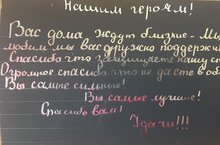 Нашим героям!
Вас дома ждут близкие - Мы
любим мы вас дружно поддержи
Спасибо что защищаете нашу ст
Огромное спасибо что не даёте в об
Вы самые сильные!
Вы самые лучшие!
Спасибо вам!
Удачи!!!